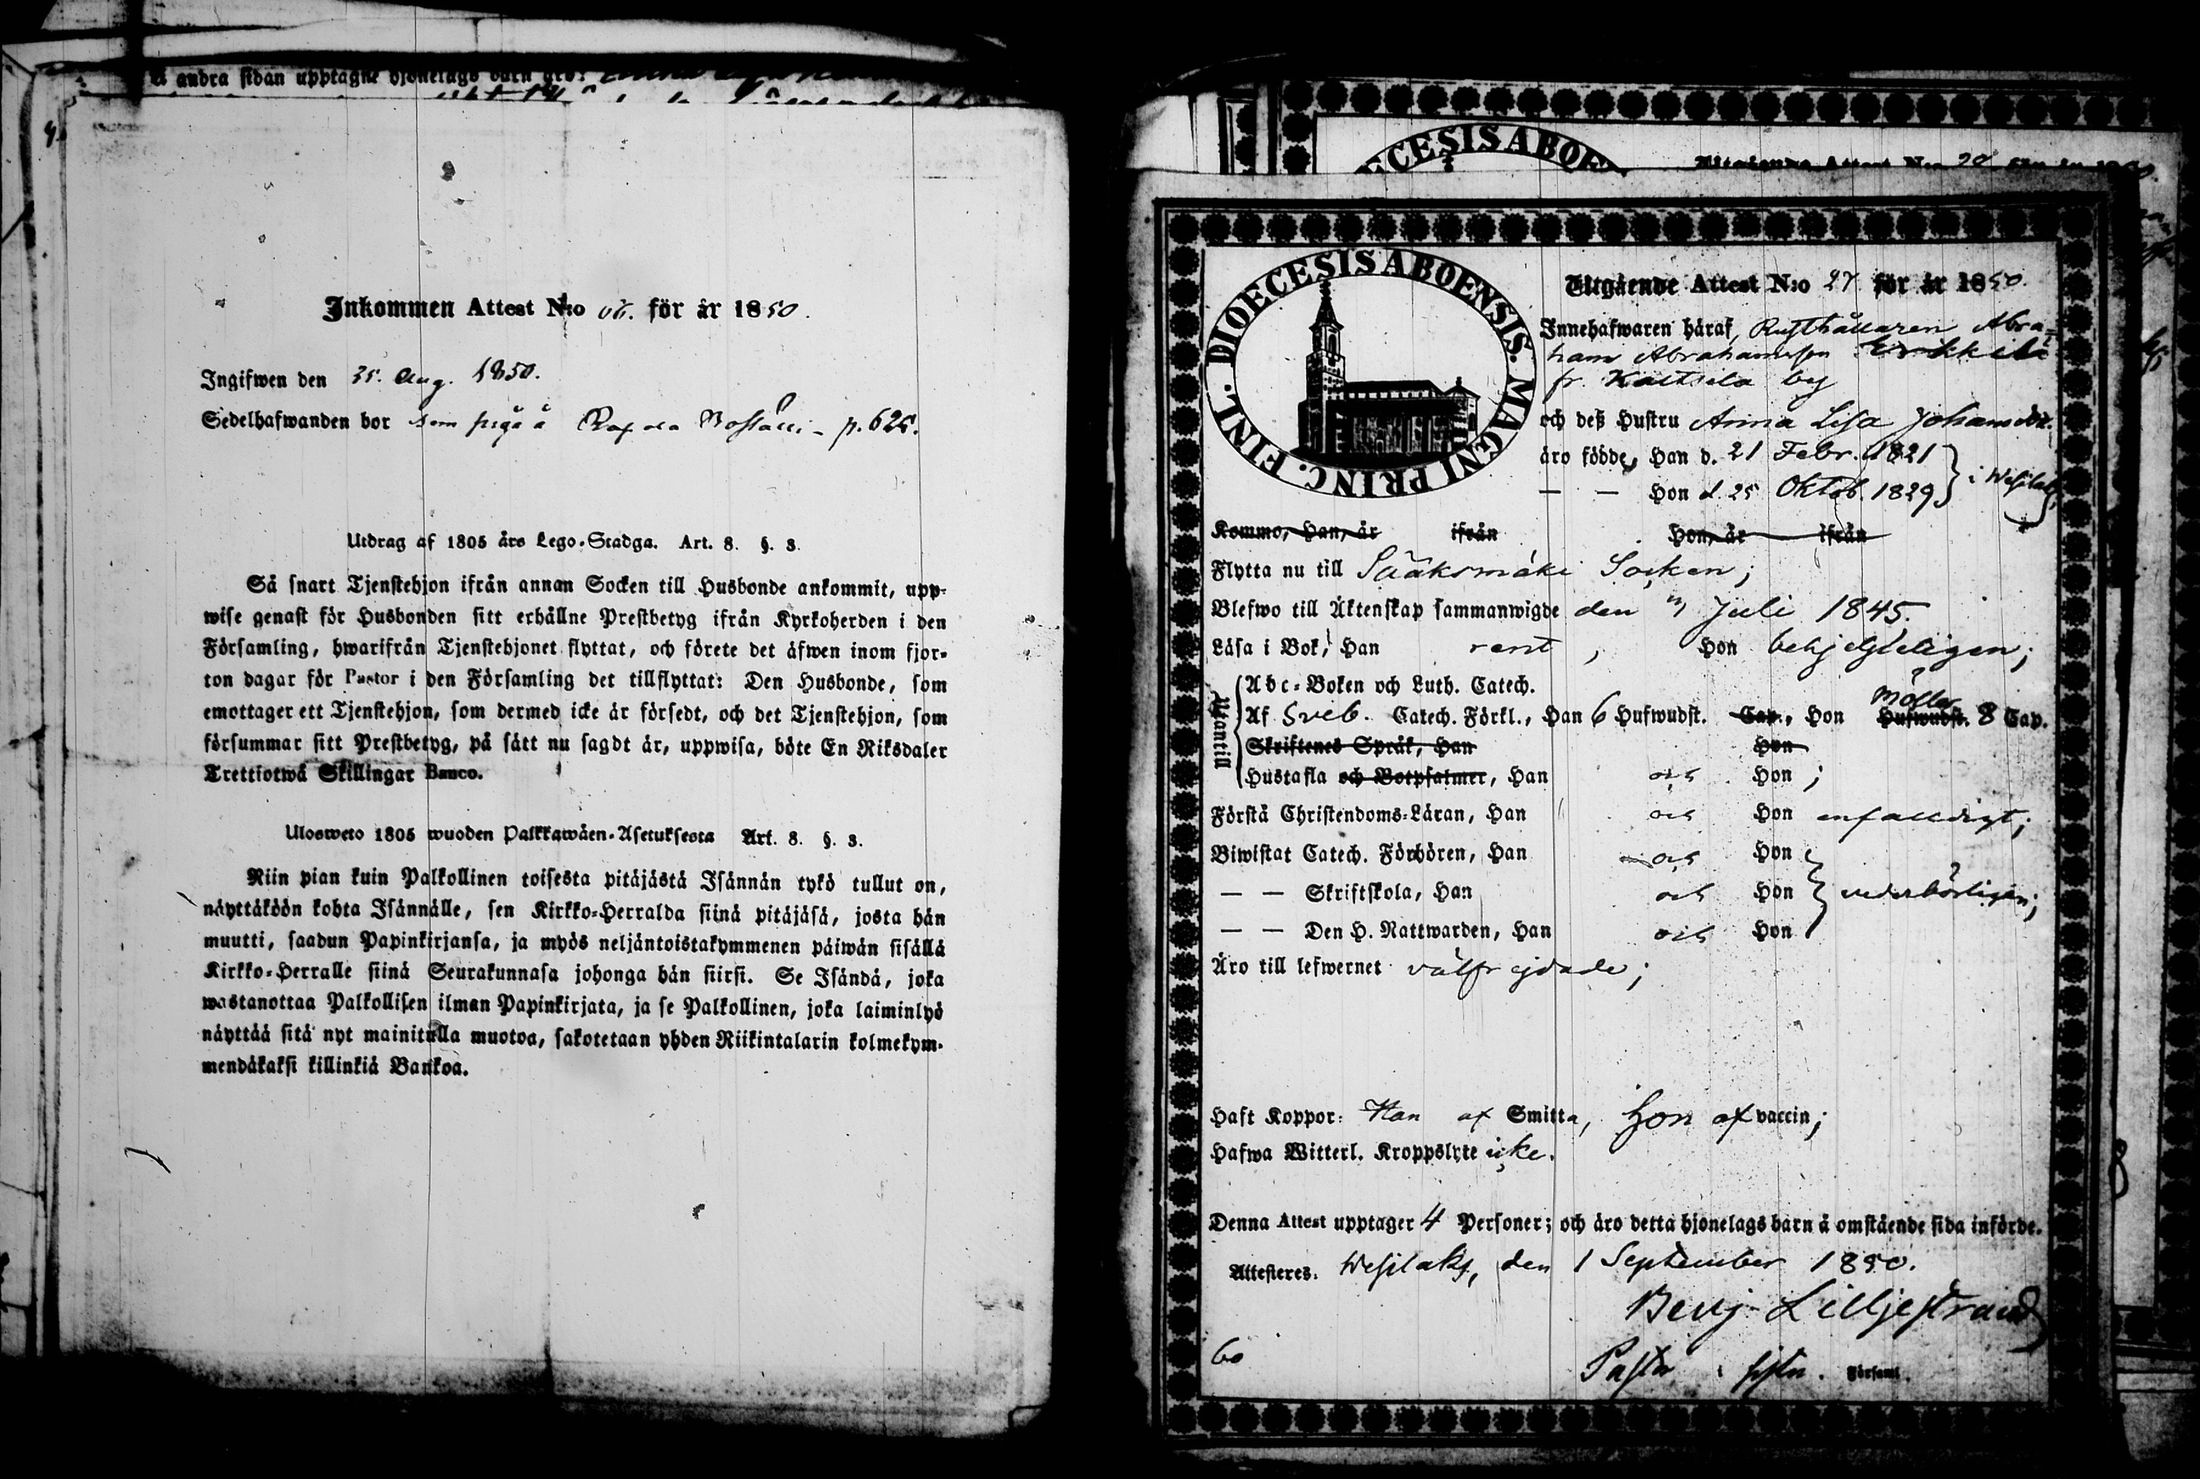 å andra sidan upptagne hjonelags barn äro:
Inkommen Attest N:o för år 1850.
Ingifwen den 25. Aug. 1850.
Sedelhafwanden bor som piga å p. 626.
Utdrag af 1805 års Lego-Stadga. Art. 8. §. 3.
Så snart Tjenstehjon ifrån annan Socken till Husbonde ankommit, upp-
wise genast för Husbonden sitt erhållne Prestbetyg ifrån Kyrkoherden i den
Församling, hwarifrån Tjenstehjonet flyttat, och förete det äfwen inom fjor-
ton dagar för Pastor i den Församling det tillflyttat: Den Husbonde, som
emottager ett Tjenstehjon, som dermed icke är försedt, och det Tjenstehjon, som
försummar sitt Prestbetyg, på sätt nu sagdt är, uppwisa, böte En Riksdaler
Trettiotwå Skillingar Banco.
Ulosweto 1805 wuoden Palkkawäen-Asetuksesta Art. 8. §. 3.
Niin pian kuin Palkollinen toisesta pitäjästä Isännän tykö tullut on,
näyttäköön kohta Isännälle, sen Kirkko-Herralda siinä pitäjäsä, josta hän
muutti, saadun Papinkirjansa, ja myös neljäntoistakymmenen päiwän sisällä
Kirkko-Herralle siinä Seurakunnasa johonga hän siirsi. Se Isändä, joka
wastanottaa Palkollisen ilman Papinkirjata, ja se Palkollinen, joka laiminlyö
näyttää sitä nyt mainitulla muotoa, sakotetaan yhden Riikintalarin kolmekym-
mendäkaksi killinkiä Bankoa.
DIOECESIS ABOE
Utgående Attest N:o 28 för år 1850.
DIOECESIS ABOENSIS. MAGNI PRINC. FINL.
Utgående Attest N:o 27 för år 1850.
Innehafwaren häraf, Rusthållaren Abra-
ham Abrahamsson Erkkilä
fr. Kaltsila by
och deß Hustru Anna Lisa Johansdr.
äro födde, Han d. 21 Febr. 1821
— — Hon d. 25 Oktob. 1829 } i Wesilaks,
Kommo, Han, är ifrån Hon, är ifrån
Flytta nu till Sääksmäki Socken;
Blefwo till Äktenskap sammanwigde den 3 Juli 1845.
Läsa i Bok, Han rent, Hon behjelpeligen;
Utantill
Abc-Boken och Luth. Catech.
Af Sveb. Catech. Förkl., Han 6 Hufwudst. Cap., Hon Hufwudst. 8 Cap.
Skriftenes Språk, Han Hon
Hustafla och Botpsalmer, Han och Hon;
Förstå Christendoms-Läran, Han och Hon enfaldigt;
Biwistat Catech. Förhören, Han och Hon
— — Skriftskola, Han och Hon } vederbörligen;
— — Den H. Nattwarden, Han och Hon
Äro till lefwernet välfrejdade;
Haft Koppor: Han af Smitta, Hon af vaccin;
Hafwa Witterl. Kroppslyte icke.
Denna Attest upptager 4 Personer; och äro detta hjonelags barn å omstående sida införde.
Attesteres. Wesilaks, den 1 September 1850.
Benj. Lilljestrand
60
Pastor Församl.